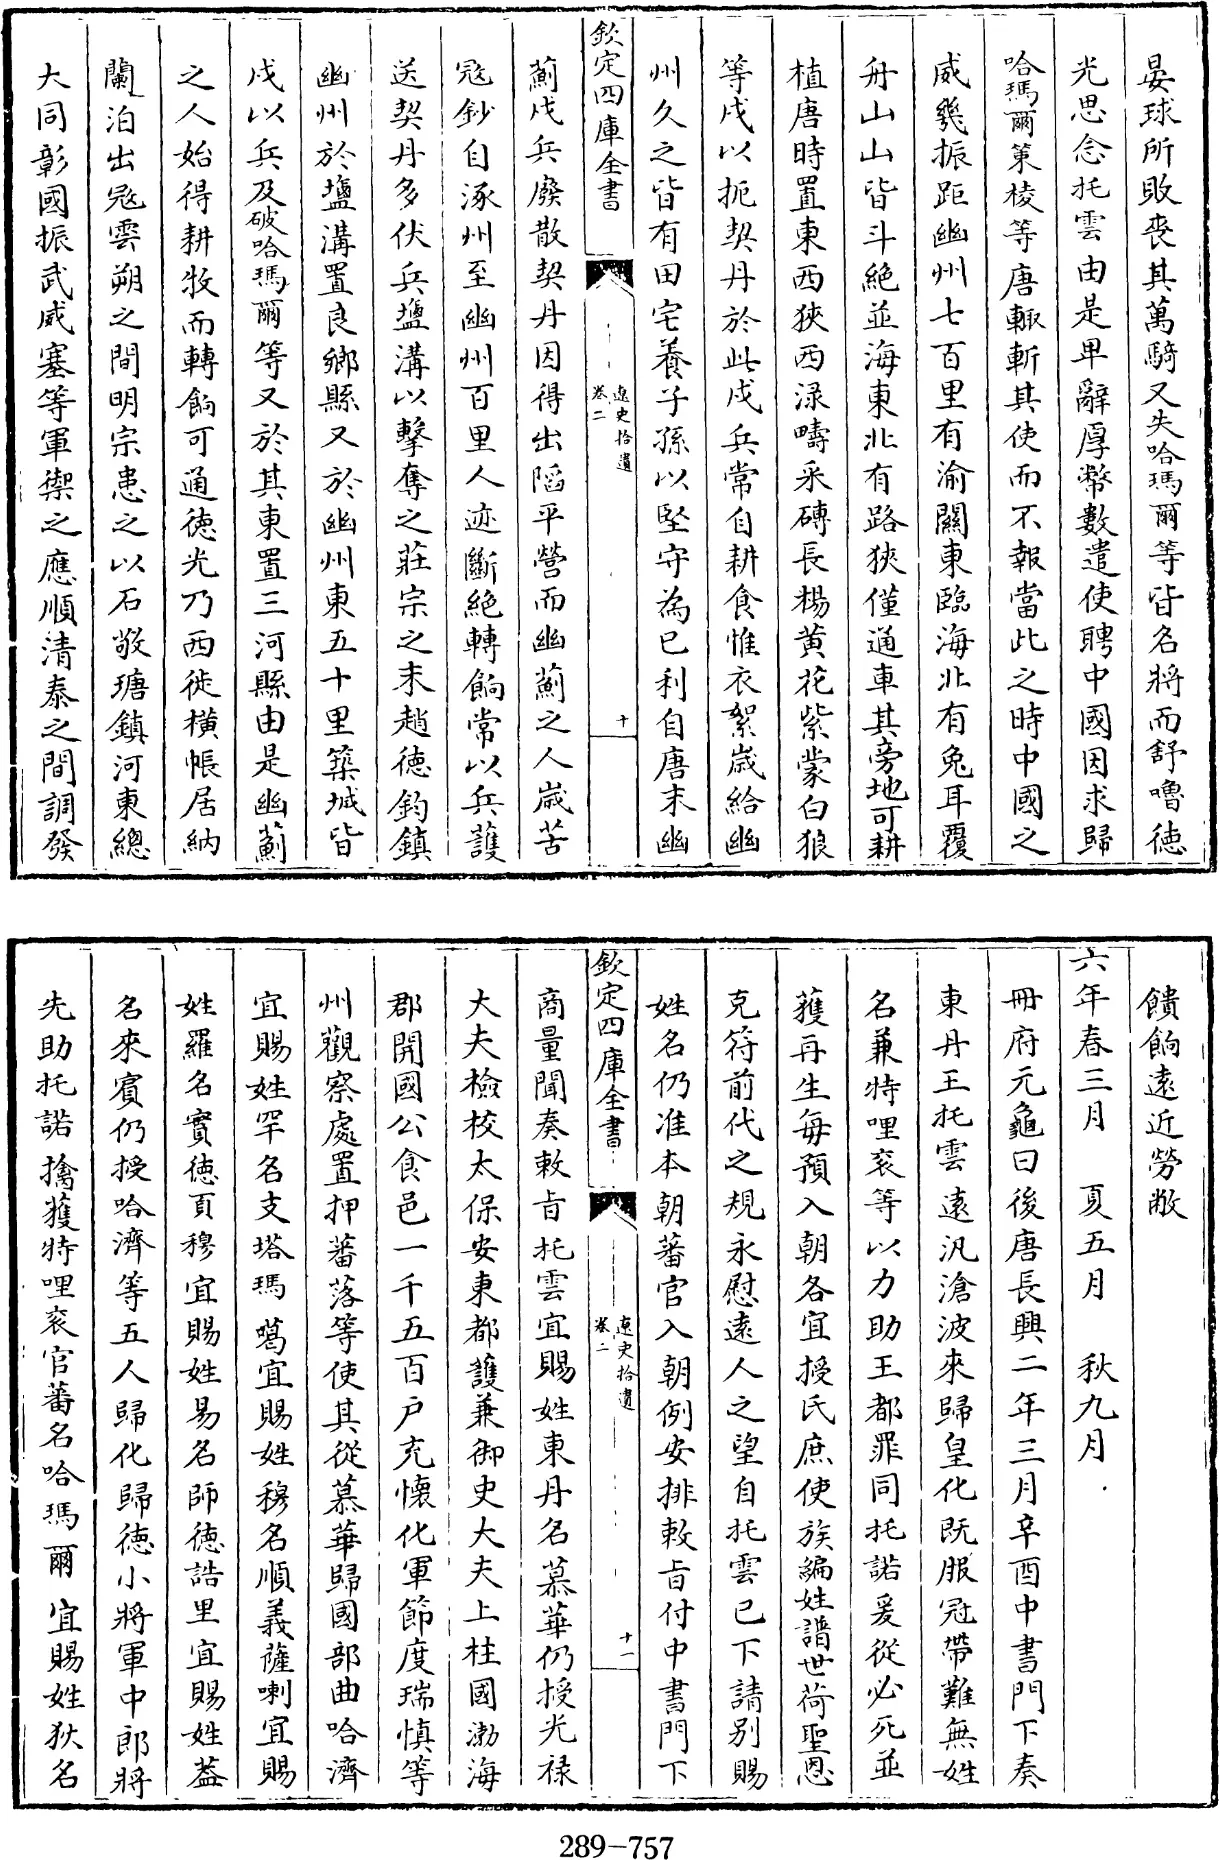 晏球所敗喪其萬騎又失哈瑪爾等皆名將而舒嚕德
光思念托雲由是卑辭厚幣數遣使聘中國因求歸
哈瑪爾策棱等唐輙斬其使而不報當此之時中國之
威幾振距幽州七百里有渝關東臨海北有兔耳覆
舟山山皆斗絶並海東北有路狹僅通車其旁地可耕
植唐時置東西狹西淥疇米磚長楊黄花紫蒙白狼
等戍以扼契丹於此戍兵常自耕食惟衣絮歲給幽
州久之皆有田宅養子孫以堅守為已利自唐末幽
欽定四庫全書
遼史拾遺
卷二
十
薊戍兵廢散契丹因得出陷平營而幽薊之人歲苦
冦鈔自涿州至幽州百里人迹斷絶轉餉常以兵護
送契丹多伏兵鹽溝以擊奪之莊宗之末趙德鈞鎮
幽州於鹽溝置良鄉縣又於幽州東五十里築城皆
戍以兵及破哈瑪爾等又於其東置三河縣由是幽薊
之人始得耕牧而轉餉可通德光乃西徙橫帳居納
蘭泊出冦雲朔之間明宗患之以石敬瑭鎮河東總
大同彰國振武威塞等軍禦之應順清泰之間調發
饋餉遠近勞敝
六年春三月 夏五月 秋九月
冊府元龜曰後唐長興二年三月辛酉中書門下奏
東丹王托雲遠汎滄波來歸皇化既服冠帶難無姓
名兼特哩衮等以力助王都罪同托諾爰從必死並
獲再生每預入朝各宜授氏庶使族編姓譜世荷聖恩
克符前代之規永慰遠人之望自托雲已下請别賜
姓名仍准本朝蕃官入朝例安排敕旨付中書門下
欽定四庫全書
遼史拾遺
卷二
十一
商量聞奏敕旨托雲宜賜姓東丹名慕華仍授光禄
大夫檢校太保安東都護兼御史大夫上柱國渤海
郡開國公食邑一千五百户充懷化軍節度瑞慎等
州觀察處置押蕃落等使其從慕華歸國部曲哈濟
宜賜姓罕名支塔瑪噶宜賜姓穆名順義薩喇宜賜
姓羅名賓德頁穆宜賜姓易名師德誥里宜賜姓蓋
名來賓仍授哈濟等五人歸化歸德小將軍中郎將
先助托諾擒獲特哩衮官蕃名哈瑪爾宜賜姓狄名
289-757